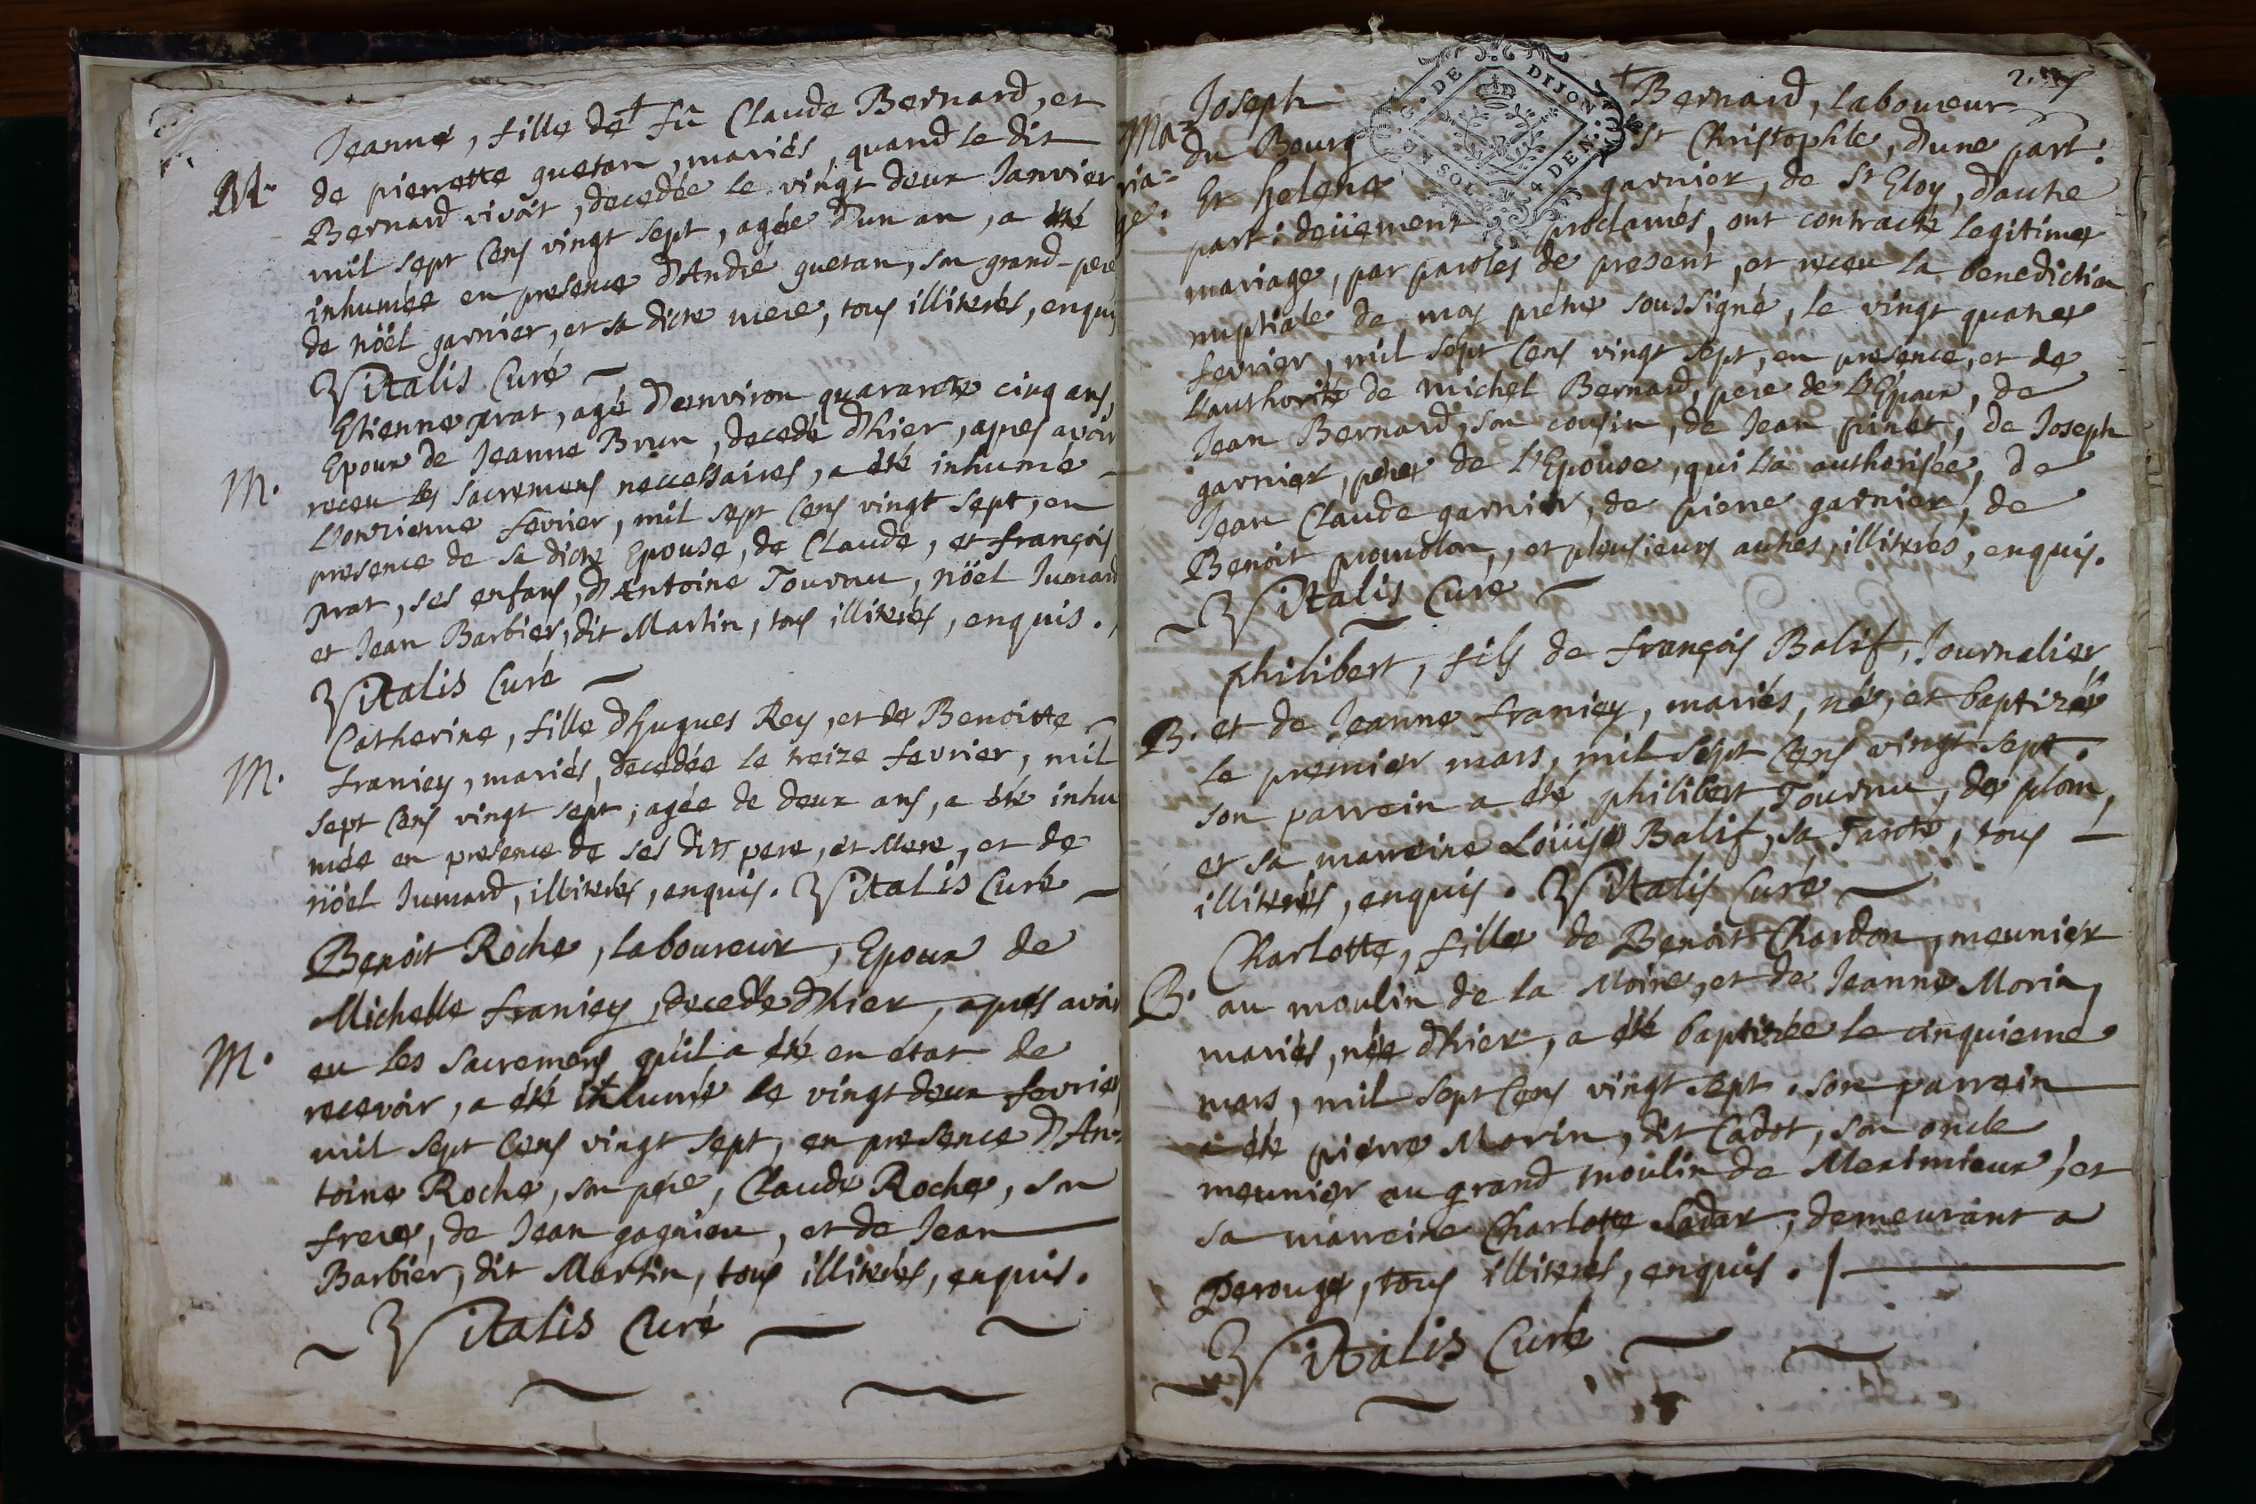 Jeanne, fille de + fû Claude Bernard, et
M. de pierrette guetan, mariés, quand le dit
Bernard vivoit, decedée le vingt deux Janvier
mil sept cens vingt sept, agée d'un an, a été
inhumée en presence d'André guetan, son grand-pere
de nöel garnier, et sa dicte mere, tous illiterés, enquis
Vitalis Curé
Etienne prat, agé d'environ quarante cinq ans,
Epoux de Jeanne Brun, decedé d'hier, apres avoir
M. receu les sacremens neccessaires, a été inhumé
L'onzieme fevrier, mil sept cens vingt sept, en
presence de sa dicte Epouse, de Claude, et françois
prat, ses enfans, d'Antoine Tournu, nöel Jumard
et Jean Barbier, dit Martin, tous illiterés, enquis.
Vitalis Curé
Catherine, fille d'hugues Rey, et de Benoitte
M. franiey, mariés, decedée le treize fevrier, mil
sept cens vingt sept, agée de deux ans, a été inhu
mée en presence de ses dits pere, et Mere, et de
nöel Jumard, illiterés, enquis. Vitalis Curé
Benoit Roche, laboureur, Epoux de
Michelle franiey, decedé d'hier, apres avoir
M. eu les sacremens qu'il a été en etat de
recevoir, a été inhumé le vingt deux fevrier
mil sept cens vingt sept, en presence d'An-
toine Roche, son pere, Claude Roche, son
frere, de Jean gagnieu, et de Jean
Barbier, dit Martin, tous illiterés, enquis.
Vitalis Curé
G. DE DIJON
4 DEN.
Joseph + Bernard, laboureur
Ma= du Bourg St Christophle, d'une part:
ria= Et helene garnier, de St Eloy, d'autre
ge. part: deüement proclamés, ont contracté legitime
mariage, par paroles de present, et receu la benediction
nuptiale de moy prétre soussigné, le vingt quatre
fevrier, mil sept cens vingt sept, en presence, et de
l'authorité de michel Bernard, pere de L'Epoux, de
Jean Bernard, son cousin, de Jean pinet, de Joseph
garnier, pere de L'Epouse, qui l'a authorisée, de
Jean Claude garnier, de pierre garnier, de
Benoit, et plusieurs autres, illiterés, enquis.
Vitalis Curé
philibert, fils de françois Balif, Journalier,
B. et de Jeanne franiey, mariés, né, et baptizé
le premier mars, mil sept cens vingt sept.
son parrein a été philibert Tournu, de ploin,
et sa marreine Loüise Balif, sa Tante, tous
illiterés, enquis. Vitalis Curé
Charlotte, fille de Benoit Chardon, meunier
B. au moulin de la Moine, et de Jeanne Morin,
mariés, née d'hier, a été baptizée le cinquieme
mars, mil sept cens vingt sept. son parrein
a été pierre Morin, dit Cadot, son oncle,
meunier au grand moulin de Meximieux, et
sa marreine Charlotte, demeurant a
Perouge, tous illiterés, enquis.
Vitalis Curé